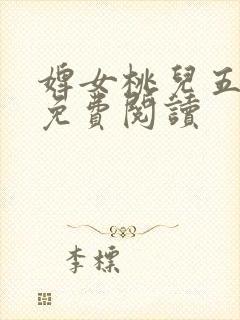 婢女桃兒五
免費閱讀
李標